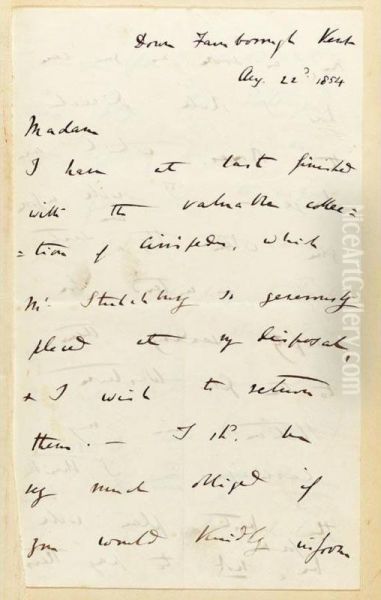 Down Farnborough Kent
Aug. 22d. 1854
Madam
I have at last finished
with the valuable collec=
=tion of Cirripedes, which
Mr. Stutchbury so generously
placed at my disposal,
& I wish to return
them. — I shd. be
very much obliged if
you would kindly inform